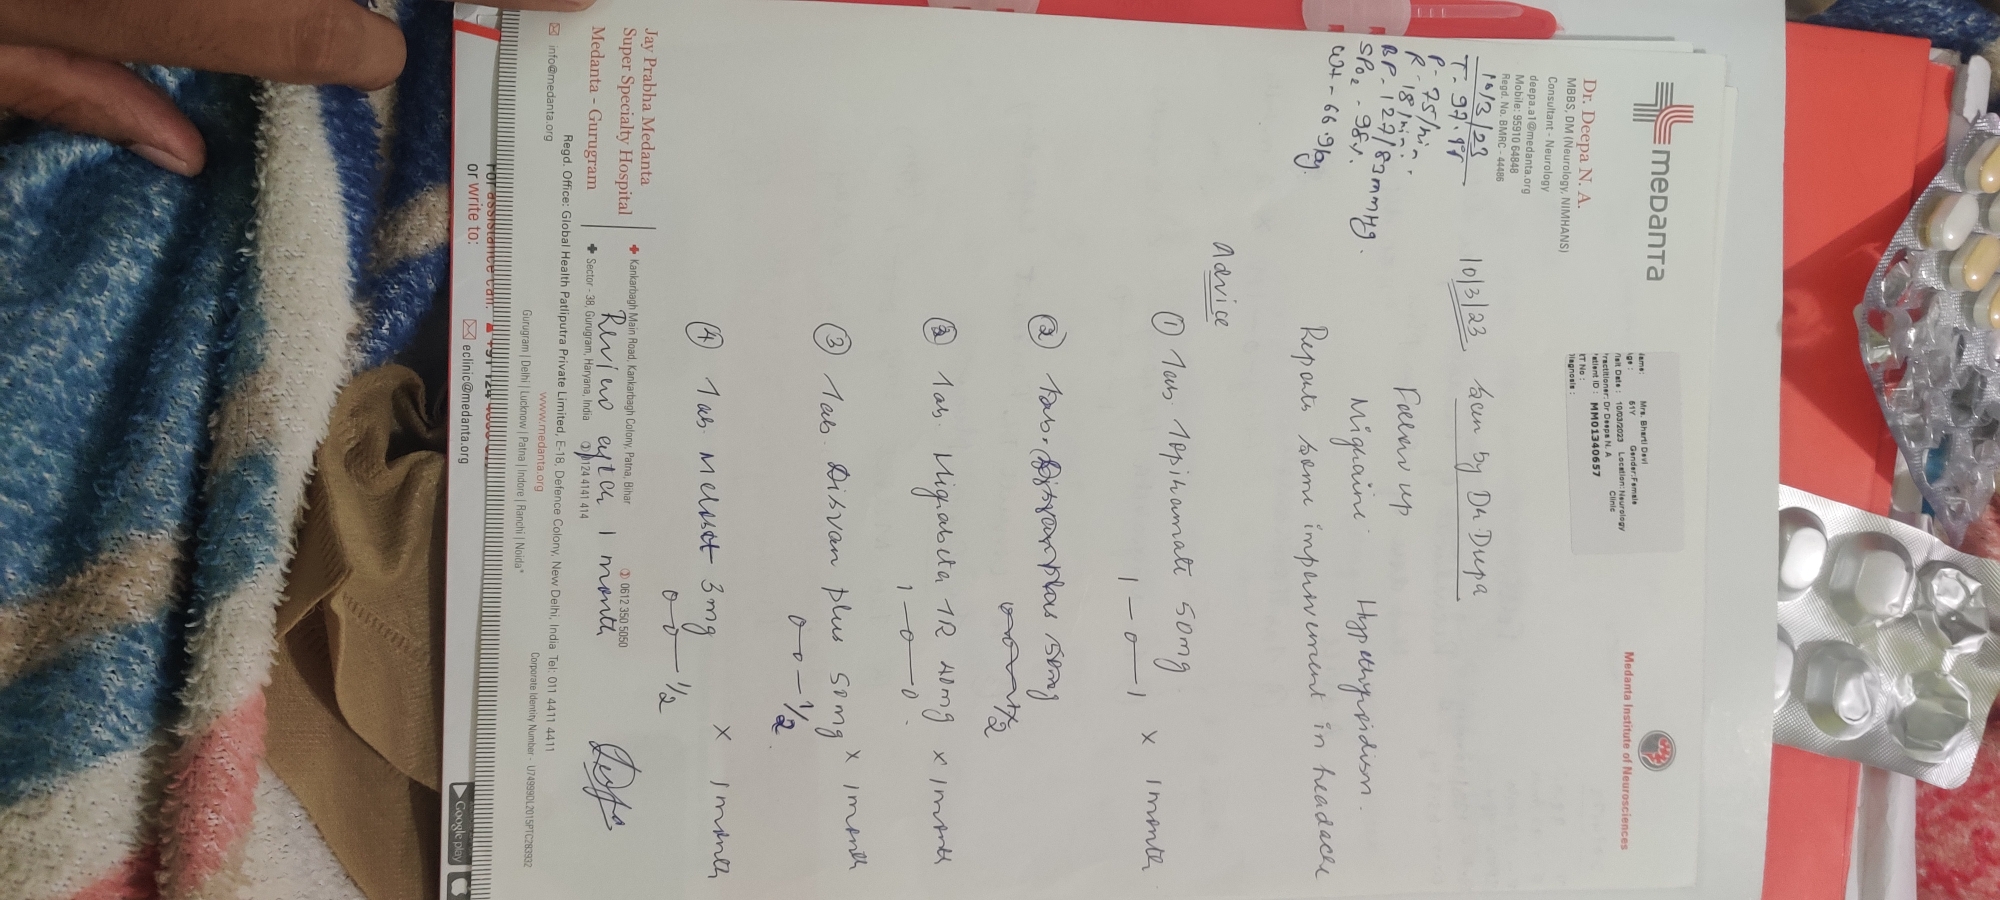 medanta
Medanta Institute of Neurosciences
Dr. Deepa N. A.
MBBS, DM (Neurology, NIMHANS)
Consultant - Neurology
deepa.a1@medanta.org
Mobile: 95910 64848
Regd. No. BMRC - 44486
Name: Mrs. Bharti Devi
Age: 61Y Gender: Female
Visit Date: 10/03/2023 Location: Neurology Clinic
Practitioner: Dr Deepa N. A
Patient ID: MM01340657
IT No:
Diagnosis:
10/3/23
P - 75/min.
R - 18/min.
BP - 127/83mmHg.
SPO2 - 98%.
Wt - 66.9kg.
10/3/23 Seen by Dr. Deepa
Follow up
Migraine. Hypothyroidism.
Reports some improvement in headache
Advice
① Tab. Topiramate 50mg x 1 month
1-0-1
② Tab. 50mg
② Tab. Migrabeta TR 40mg x 1 month
1-0-0.
③ Tab. Disvan plus 50mg x 1 month
0-0-1/2.
④ Tab. Meloset 3mg x 1 month
0-0-1/2
Review after 1 month
Jay Prabha Medanta
Super Specialty Hospital
Kankarbagh Main Road, Kankarbagh Colony, Patna, Bihar 0612 350 5050
Medanta - Gurugram
Sector - 38, Gurugram, Haryana, India 0124 4141 414
info@medanta.org
Regd. Office: Global Health Patliputra Private Limited, E-18, Defence Colony, New Delhi, India Tel: 011 4411 4411
www.medanta.org
Corporate Identity Number - U74999DL2015PTC283932
Gurugram | Delhi | Lucknow | Patna | Indore | Ranchi | Noida*
For assistance call:
or write to: eclinic@medanta.org
Google play